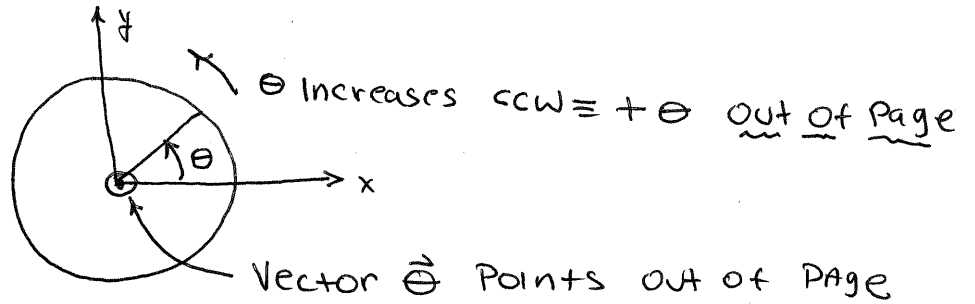 y
θ Increases CCW ≡ + θ Out Of Page
θ
x
Vector θ⃗ Points Out of PAge